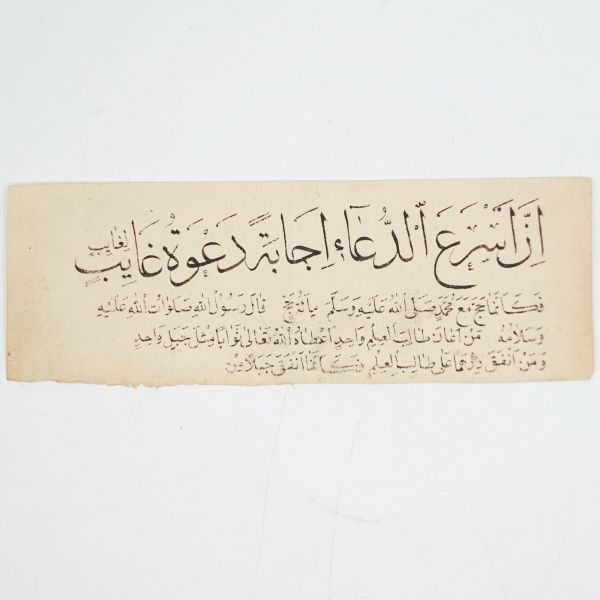 اِنَّ اَسْرَعَ الدُّعَاءِ اِجَابَةً دَعْوَةُ غَايِبٍ لِغَايِبٍ
فَكَاَنَّمَا حَجَّ مَعَ مُحَمَّدٍ صَلَّى اللهُ عَلَيْهِ وَسَلَّمَ قَالَ رَسُولُ اللهِ صَلَوَاتُ اللهِ عَلَيْهِ
وَسَلَامُهُ مَنْ اَعَانَ طَالِبَ الْعِلْمِ وَاحِدٍ اَعْطَاهُ اللهُ تَعَالٰى ثَوَابًا مِثْلَ جَبَلٍ وَاحِدٍ
وَمَنْ اَنْفَقَ دِرْهَمًا عَلٰى طَالِبِ الْعِلْمِ فَكَاَنَّمَا اَنْفَقَ جَبَلًا مِنْ